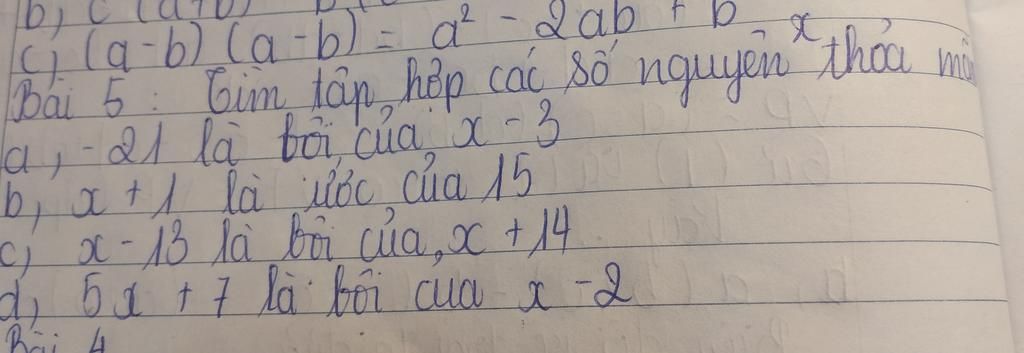 b, c (a+b)
c, (a-b) (a-b) = a² - 2ab + b
Bài 5 : Tìm tập hợp các số nguyên x thỏa mãn
a, -21 là bội của x - 3
b, x + 1 là ước của 15
c) x - 13 là bội của x + 14
d, 5x + 7 là bội cua x - 2
Bài 4